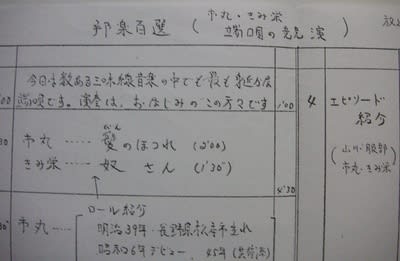 邦楽百選 (市丸・きみ栄
端唄の競演)
今日は数ある三味線音楽の中でも最も身近な
端唄です。演奏は、おなじみのこの方々です
1'00
市丸 ‥‥‥ 鬢のほつれ (2'00)
びん
きみ栄 ‥‥‥ 奴さん (1'30")
4'30
ロール紹介
市丸 ‥‥‥ 明治39年・長野県松本市生れ
昭和6年デビュー、45年
4 エピソード
紹介
(山川・服部
市丸・きみ栄)